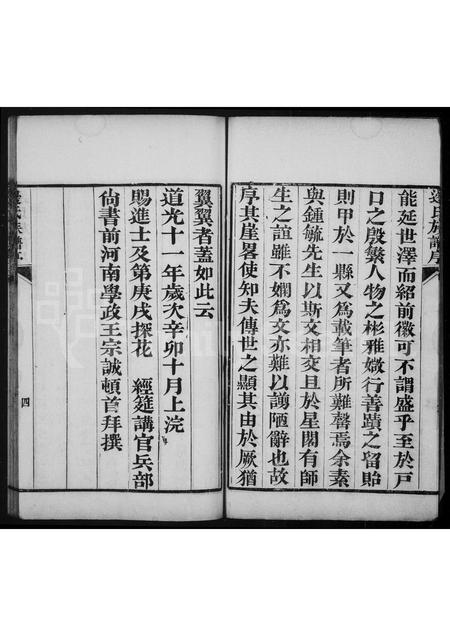 逄氏族譜序
能延世澤而紹前徽可不謂盛乎至於戸
口之殷繁人物之彬雅媺行善蹟之留貽
則甲於一縣又為載筆者所難罄焉余素
與鍾毓先生以斯交相交且於星閣有師
生之誼雖不嫻為文亦難以謭陋辭也故
序其崖畧使知夫傳世之顯其由於厥猶
翼翼者蓋如此云
道光十一年歲次辛卯十月上浣
賜進士及第庚戌探花 經筵講官兵部
尚書前河南學政王宗誠頓首拜撰
四